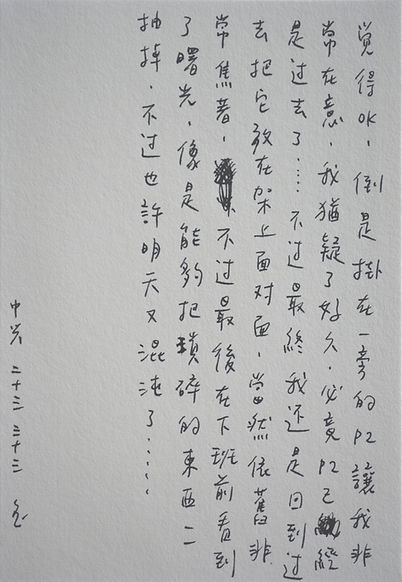 觉得OK，倒是掛在一旁的P2讓我非
常在意，我猶疑了好久，必竟P2已經
是过去了……不过最終我还是回到过
去把它放在架上面对面，當然依舊非
常焦着，不过最後在下班前看到
了曙光，像是能夠把瑣碎的東西一一
抽掉，不过也許明天又混沌了……
中兴 二十三 二十三